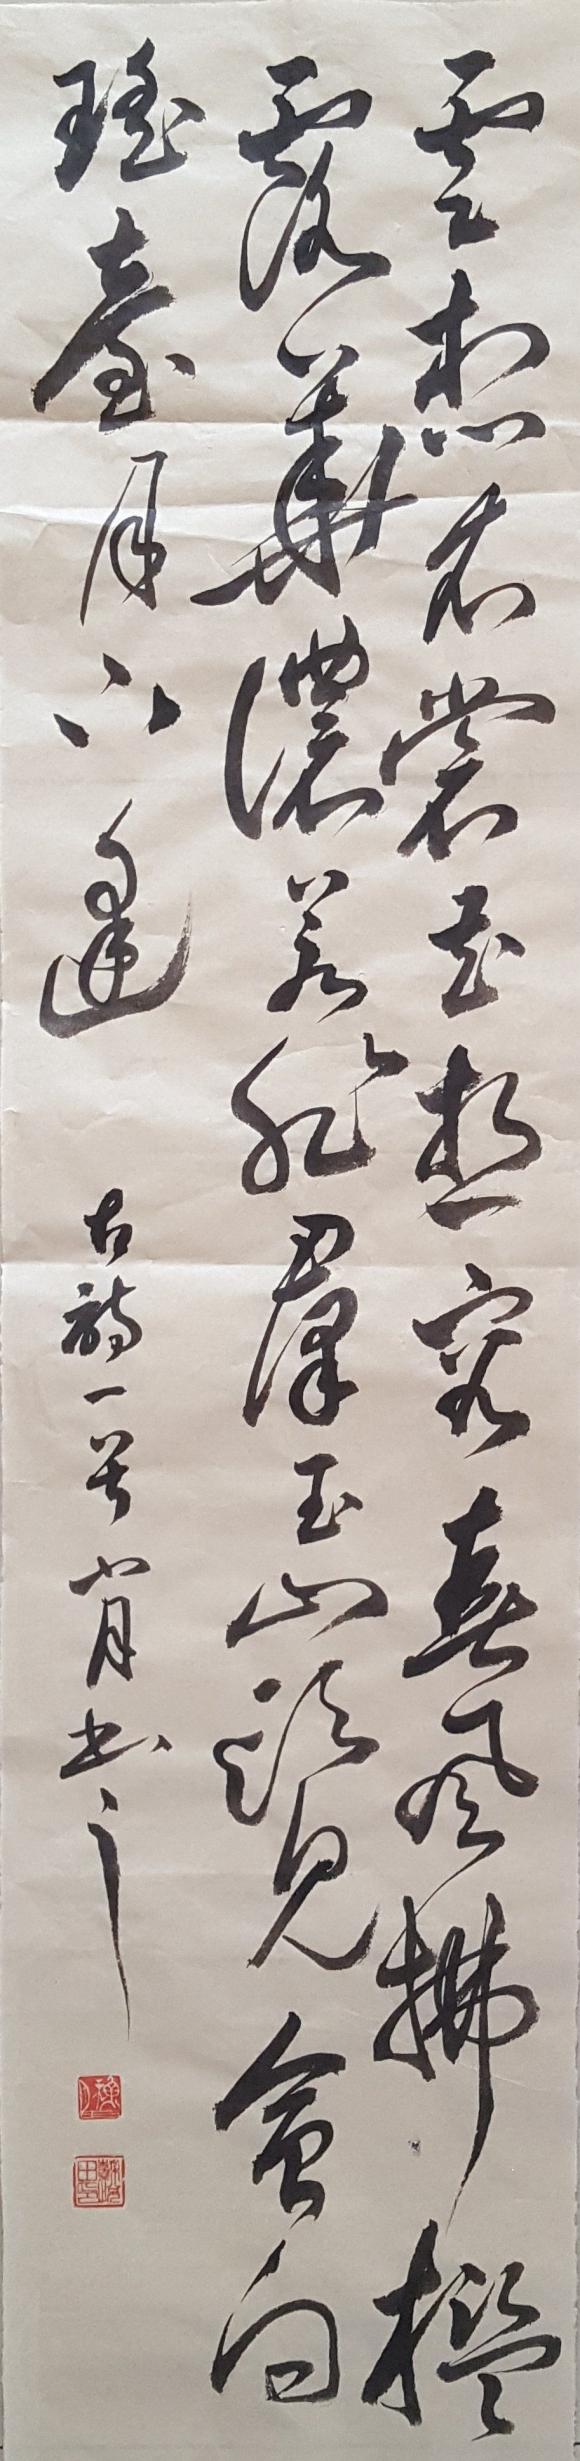 雲想衣裳花想容春風拂檻
露華濃若非羣玉山頭見會向
瑤臺月下逢
古詩一首 書